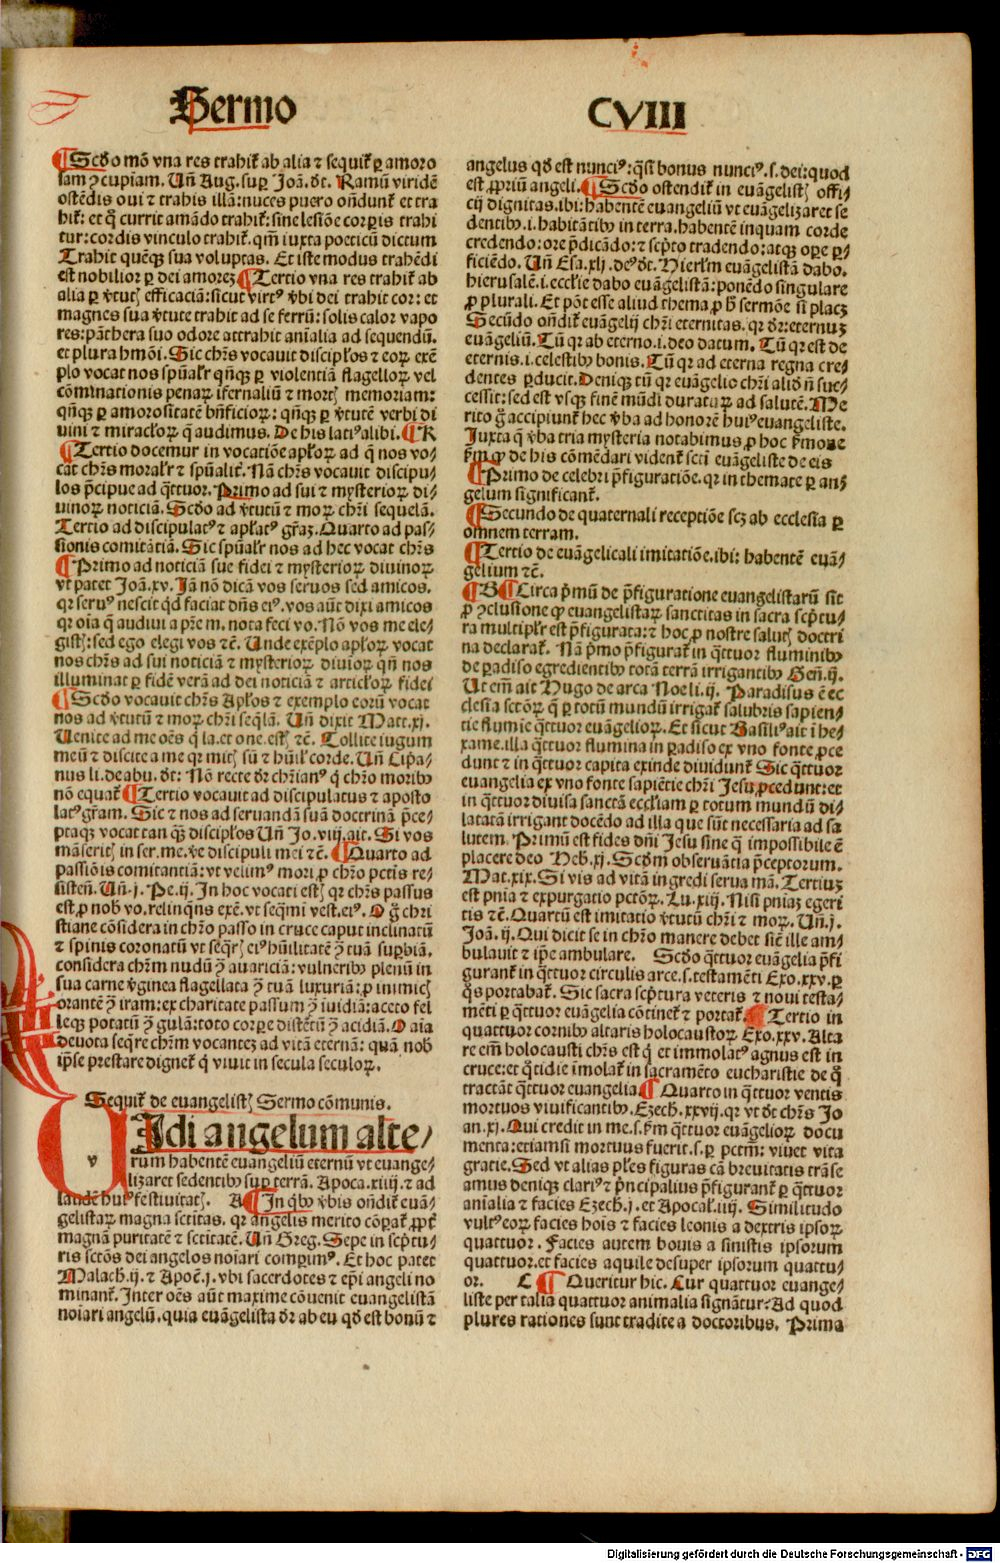 Sermo
CVIII
¶ Scd̃o mõ vna res trahit̃ ab alia ⁊ sequit̃ ꝑ amoro
sam ꝯcupiam. Uñ Aug. suꝑ Joã. dt̃. Ramũ viridẽ
ostẽdis oui ⁊ trahis illã: nuces puero oñdunt̃ et tra
hit̃: et q̃ currit amãdo trahit̃: sine lesiõe corꝑis trahi
tur: cordis vinculo trahit̃. qm̃ iuxta poeticũ dictum
Trahit quẽqꝫ sua voluptas. Et iste modus trahẽdi
est nobilior ꝑ dei amoreꝫ ¶ Tertio vna res trahit̃ ab
alia ꝑ ṽtutꝭ efficaciã: sicut virtꝰ ṽbi dei trahit cor: et
magnes sua ṽtute trahit ad se ferrũ: solis calor vapo
res: pãthera suo odore attrahit aĩalia ad sequendũ.
et plura hmõi. Sic chr̃s vocauit discipl̃os ⁊ eoꝝ exẽ
plo vocat nos spũalr̃ qñqꝫ ꝑ violentiã flagelloꝝ vel
cõminationis penaꝝ ifernaliũ ⁊ mortꝭ memoriam:
qñqꝫ ꝑ amorositatẽ bñficioꝝ: qñqꝫ ꝑ ṽtutẽ verbi di
uini ⁊ miracl̃oꝝ q̃ audimus. De his latiꝰ alibi. ¶ K
¶ Tertio docemur in vocatiõe apl̃oꝝ ad q̃ nos vo-
cat chr̃s moralr̃ ⁊ spũalit̃. Nã chr̃s vocauit discipu-
los p̃cipue ad q̃ttuor. Primo ad sui ⁊ mysterioꝝ di-
uinoꝝ noticiã. Scd̃o ad ṽtutũ ⁊ moꝝ chr̃i sequelã.
Tertio ad discipulatꝰ ⁊ apl̃atꝰ gr̃aꝫ. Quarto ad pas-
sionis comitãtiã. Sic spũalr̃ nos ad hec vocat chr̃s
¶ Primo ad noticiã sue fidei ⁊ mysterioꝝ diuinoꝝ
vt patet Joã. xv. Jã nõ dicã vos seruos sed amicos.
qꝛ seruꝰ nescit qd̃ faciat dñs eiꝰ. vos aũt dixi amicos
qꝛ oĩa q̃ audiui a p̃re m. nota feci vo. Nõ vos me ele-
gistꝭ: sed ego elegi vos ⁊c̃. Unde exẽplo apl̃oꝝ vocat
nos chr̃s ad sui noticiã ⁊ mysterioꝝ diuioꝝ qñ nos
illuminat ꝑ fidẽ verã ad dei noticiã ⁊ articl̃oꝝ fidei
¶ Scd̃o vocauit chr̃s Apl̃os ⁊ exemplo eorũ vocat
nos ad ṽtutũ ⁊ moꝝ chr̃i seq̃lã. Uñ dixit Matt. xj.
Uenite ad me oẽs q̃ la. et one. estꝭ ⁊c̃. Tollite iugum
meũ ⁊ discite a me qꝛ mitꝭ sũ ⁊ hũil̃ corde. Uñ Cipꝛia-
nus li. de abu. dt̃: Nõ recte dr̃ chr̃ianꝰ q̃ chr̃o moribꝰ
nõ equat̃ ¶ Tertio vocauit ad discipulatus ⁊ aposto
latꝰ gr̃am. Sic ⁊ nos ad seruandã suã doctrinã p̃ce-
ptaqꝫ vocat tan q̃ꝫ discipl̃os Uñ Jo. viij. ait. Si vos
mãseritꝭ in ser. me. ṽe discipuli mei ⁊c̃. ¶ Quarto ad
passiõis comitantiã: vt velimꝰ mori ꝓ chr̃o pctĩs re-
sistẽn. Uñ. j. Pe. ij. In hoc vocati estꝭ qꝛ chr̃s passus
est ꝓ nob̃ vo. relinq̃ns exẽ. vt seq̃mĩ vest. eiꝰ. O g̃ chri
stiane cõsidera in chr̃o passo in cruce caput inclinatũ
⁊ spinis coronatũ vt seq̃rꝭ eiꝰ hũilitatẽ ꝯ̃ tuã suꝑbiã.
considera chr̃m nudũ ꝯ̃ auariciã: vulneribꝰ plenũ in
sua carne ṽginea flagellata ꝯ̃ tuã luxuriã: ꝓ inimicꝭ
orantẽ ꝯ̃ iram: ex charitate passum ꝯ̃ iuidiã: aceto fel
leqꝫ potatũ ꝯ̃ gulã: toto corꝑe distẽtũ ꝯ̃ acidiã. O aĩa
deuota seq̃re chr̃m vocanteꝫ ad vitã eternã: quã nob̃
ip̃se prestare dignet̃ q̃ viuit in secula seculoꝝ.
Sequit̃ de euangelistꝭ Sermo cõmunis.
Uidi angelum alte-
v
rum habentẽ euangeliũ eternũ vt euange-
lizaret sedentibꝰ suꝑ terrã. Apoca. xiiij. ⁊ ad
laudẽ huiꝰ festiuitatꝭ. A ¶ In qbꝰ ṽbis oñdit̃ euã-
gelistaꝝ magna sctĩtas. qꝛ angelis merito cõꝑat̃ ꝓpt̃
magnã puritatẽ ⁊ sctĩtatẽ. Uñ Greg. Sepe in scp̃tu-
ris sctõs dei angelos noĩari comꝑimꝰ. Et hoc patet
Malach. ij. ⁊ Apoc̃. j. vbi sacerdotes ⁊ ep̃i angeli no
minant̃. Inter oẽs aũt maxime cõuenit euangelistã
noĩari angelũ. quia euãgelista dr̃ ab eu qd̃ est bonũ ⁊
angelus qd̃ est nunciꝰ: q̃si bonus nunciꝰ. s. dei: quod
est ꝓpriũ angeli. ¶ Scd̃o ostendit̃ in euãgelistꝭ offi-
cij dignitas. ibi: habentẽ euangeliũ vt euãgelizaret se
dentibꝰ. i. habitãtibꝰ in terra. habentẽ inquam corde
credendo: ore p̃dicãdo: ⁊ scp̃to tradendo: atqꝫ oꝑe ꝑ-
ficiẽdo. Uñ Esa. xlj. deꝰ dt̃. Hierlm̃ euãgelistã dabo.
hierusalẽ. i. eccl̃ie dabo euãgelistã: ponẽdo singulare
ꝓ plurali. Et põt esse aliud thema ꝓ h̃ sermõe si placꝫ
Secũdo oñdit̃ euãgelij chr̃i eternitas. qꝛ dr̃: eternuꝫ
euãgeliũ. Tũ qꝛ ab eterno. i. deo datum. Tũ qꝛ est de
eternis. i. celestibꝰ bonis. Tũ qꝛ ad eterna regna cre-
dentes ꝑducit. Deniqꝫ tũ qꝛ euãgelio chr̃i aliđ ñ suc-
cessit: sed est vsqꝫ finẽ mũdi duratuꝝ ad salutẽ. Me
rito g̃ accipiunt̃ hec ṽba ad honorẽ huiꝰ euangeliste.
Juxta q̃ ṽba tria mysteria notabimus ꝓ hoc ẛmone
ẛm ꝙ de his cõmẽdari vident̃ sctĩ euãgeliste de eis
¶ Primo de celebri p̃figuratiõe. qꝛ in themate ꝑ an-
gelum significant̃.
¶ Secundo de quaternali receptiõe scꝫ ab ecclesia ꝑ
omnem terram.
¶ Tertio de euãgelicali imitatiõe. ibi: habentẽ euã-
gelium ⁊c̃.
¶ B ¶ Circa p̃mũ de p̃figuratione euangelistarũ sit
ꝓ ꝯclusione ꝙ euangelistaꝝ sanctitas in sacra scp̃tu-
ra multiplr̃ est p̃figurata: ⁊ hoc ꝓ nostre salutꝭ doctri
na declarat̃. Nã p̃mo p̃figurat̃ in q̃ttuor fluminibꝰ
de ꝑadiso egredientibꝰ totã terrã irrigantibꝰ Gen̄. ij.
Ut em̃ ait Hugo de arca Noe li. ij. Paradisus ẽ ec
clesia sctõꝝ q̃ ꝑ totũ mundũ irrigat̃ salubris sapien-
tie flumĩe q̃ttuor euãgelioꝝ. Et sicut Basiliꝰ ait i he-
xame. illa q̃ttuor flumina in ꝑadiso ex vno fonte ꝓce
dunt ⁊ in q̃ttuor capita exinde diuidunt̃ Sic q̃ttuor
euangelia ex vno fonte sapiẽtie chr̃i Jesu ꝓcedunt: et
in q̃ttuor diuisa sanctã eccl̃iam ꝑ totum mundũ di-
latatã irrigant docẽdo ad illa que sũt necessaria ad sa
lutem. Primũ est fides dñi Jesu sine q̃ impossibile ẽ
placere deo Heb. xj. Scd̃m obseruãtia p̃ceptorum.
Mat. xix. Si vis ad vitã ingredi serua mã. Tertiuꝫ
est pñia ⁊ expurgatio pctõꝝ. Lu. xiij. Nisi pñiaꝫ egeri
tis ⁊c̃. Quartũ est imitatio ṽtutũ chr̃i ⁊ moꝝ. Uñ. j.
Joã. ij. Qui dicit se in chr̃o manere debet sic̃ ille am-
bulauit ⁊ ip̃e ambulare. Scd̃o q̃ttuor euangelia p̃fi
gurant̃ in q̃ttuor circulis arce. s. testamẽti Exo. xxv. ꝑ
q̃s portabat̃. Sic sacra scp̃tura veteris ⁊ noui testa-
mẽti ꝑ q̃ttuor euãgelia cõtinet̃ ⁊ portat̃. ¶ Tertio in
quattuor cornibꝰ altaris holocaustoꝝ Exo. xxv. Alta
re em̃ holocausti chr̃s est q̃ et immolatꝰ agnus est in
cruce: et q̃tidie ĩmolat̃ in sacramẽto eucharistie de q̃
tractãt q̃ttuor euangelia. ¶ Quarto in q̃ttuor ventis
mortuos viuificantibꝰ. Ezech. xxvij. qꝛ vt dt̃ chr̃s Jo
an. xj. Qui credit in me. s. ẛm q̃ttuor euãgelioꝝ docu
menta: etiamsi mortuus fuerit. s. ꝑ pctm̃: viuet vita
gratie. Sed vt alias pl̃es figuras cã breuitatis trãse
amus deniqꝫ clariꝰ ⁊ p̃ncipalius p̃figurant̃ ꝑ q̃ttuor
aĩalia ⁊ facies Ezech. j. et Apocal̃. iiij. Similitudo
vultꝰ eoꝝ facies hoĩs ⁊ facies leonis a dextris ipsoꝝ
quattuor. Facies autem bouis a sinistis ipsorum
quattuor. et facies aquile desuper ipsorum quattu-
or. C ¶ Queritur hic. Cur quattuor euange-
liste per talia quattuor animalia signãtur? Ad quod
plures rationes sunt tradite a doctoribus. Prima
Digitalisierung gefördert durch die Deutsche Forschungsgemeinschaft - DFG